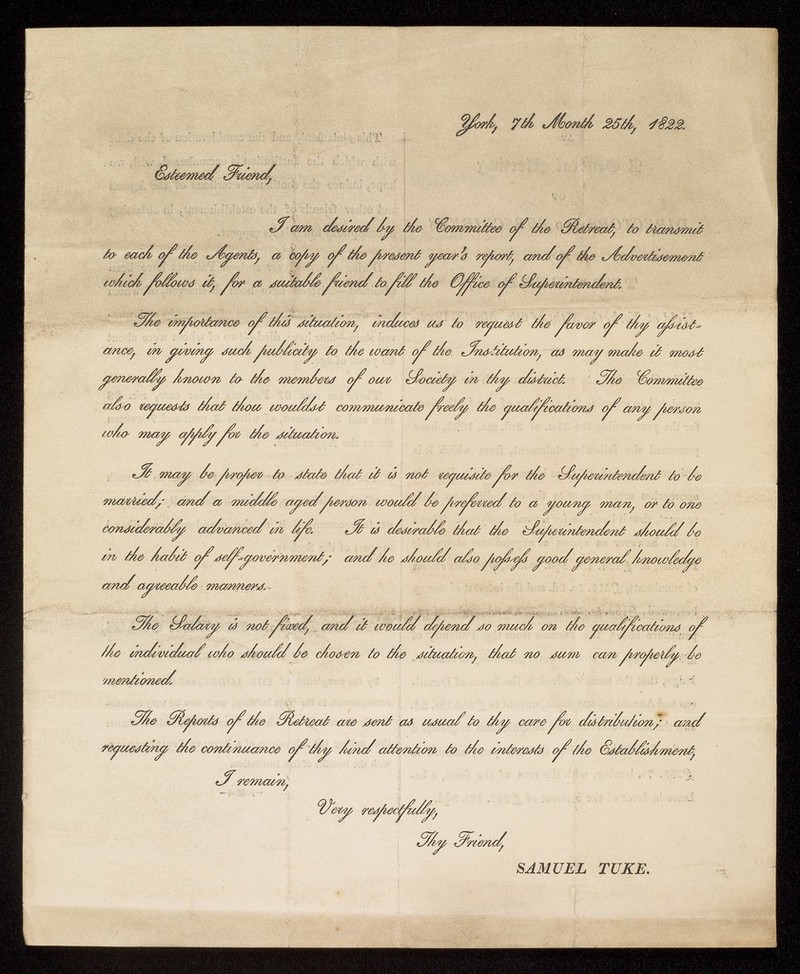 York, 7th Month 25th, 1822.
Esteemed Friend,
I am desired by the Committee of the Retreat, to transmit
to each of the Agents, a copy of the present year's report, and of the Advertisement
which follows it, for a suitable friend to fill the Office of Superintendent.
The importance of this situation, induces us to request the favor of thy assist-
ance, in giving such publicity to the want of the Institution, as may make it most
generally known to the members of our Society in thy district. The Committee
also requests that thou wouldst communicate freely the qualifications of any person
who may apply for the situation.
It may be proper to state that it is not requisite for the Superintendent to be
married; and a middle aged person would be preferred to a young man, or to one
considerably advanced in life. It is desirable that the Superintendent should be
in the habit of self-government; and he should also possess good general knowledge
and agreeable manners.-
The Salary is not fixed, and it would depend so much on the qualifications of
the individual who should be chosen to the situation, that no sum can properly be
mentioned.
The Reports of the Retreat are sent as usual to thy care for distribution; and
requesting the continuance of thy kind attention to the interests of the Establishment,
I remain,
Very respectfully,
Thy Friend,
SAMUEL TUKE.